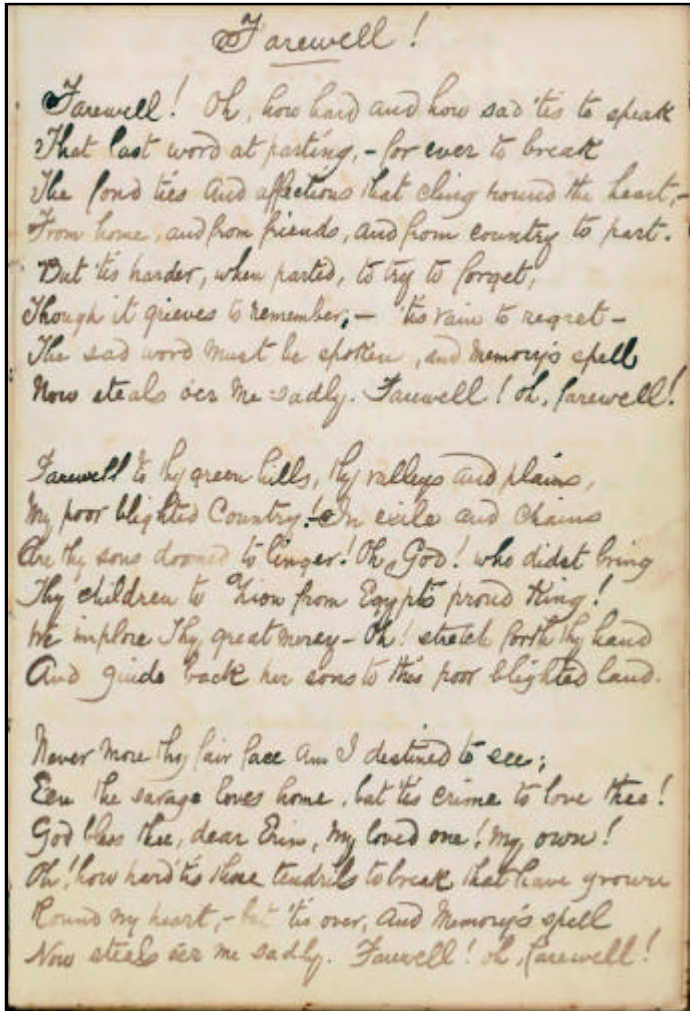 Farewell!
Farewell! Oh, how hard and how sad 'tis to speak
That last word at parting, - for ever to break
The fond ties and affections that cling round the heart, -
From home, and from friends, and from country to part.
But 'tis harder, when parted, to try to forget,
Though it grieves to remember; - 'tis vain to regret -
The sad word must be spoken, and Memory's spell
Now steals o'er me sadly. Farewell! oh, farewell!
Farewell to thy green hills, thy valleys and plains,
My poor blighted Country! In exile and chains
Are thy sons doomed to linger! Oh, God! who didst bring
Thy children to Zion from Egypt's proud King!
We implore Thy great mercy - Oh! stretch forth thy hand
And guide back her sons to this poor blighted land.
Never more thy fair face am I destined to see;
E'en the savage loves home, but 'tis crime to love thee!
God bless thee, dear Erin, my loved one! my own!
Oh! how hard 'tis these tendrils to break that have grown
Round my heart, - but 'tis over, and Memory's spell
Now steals o'er me sadly. Farewell! oh, farewell!